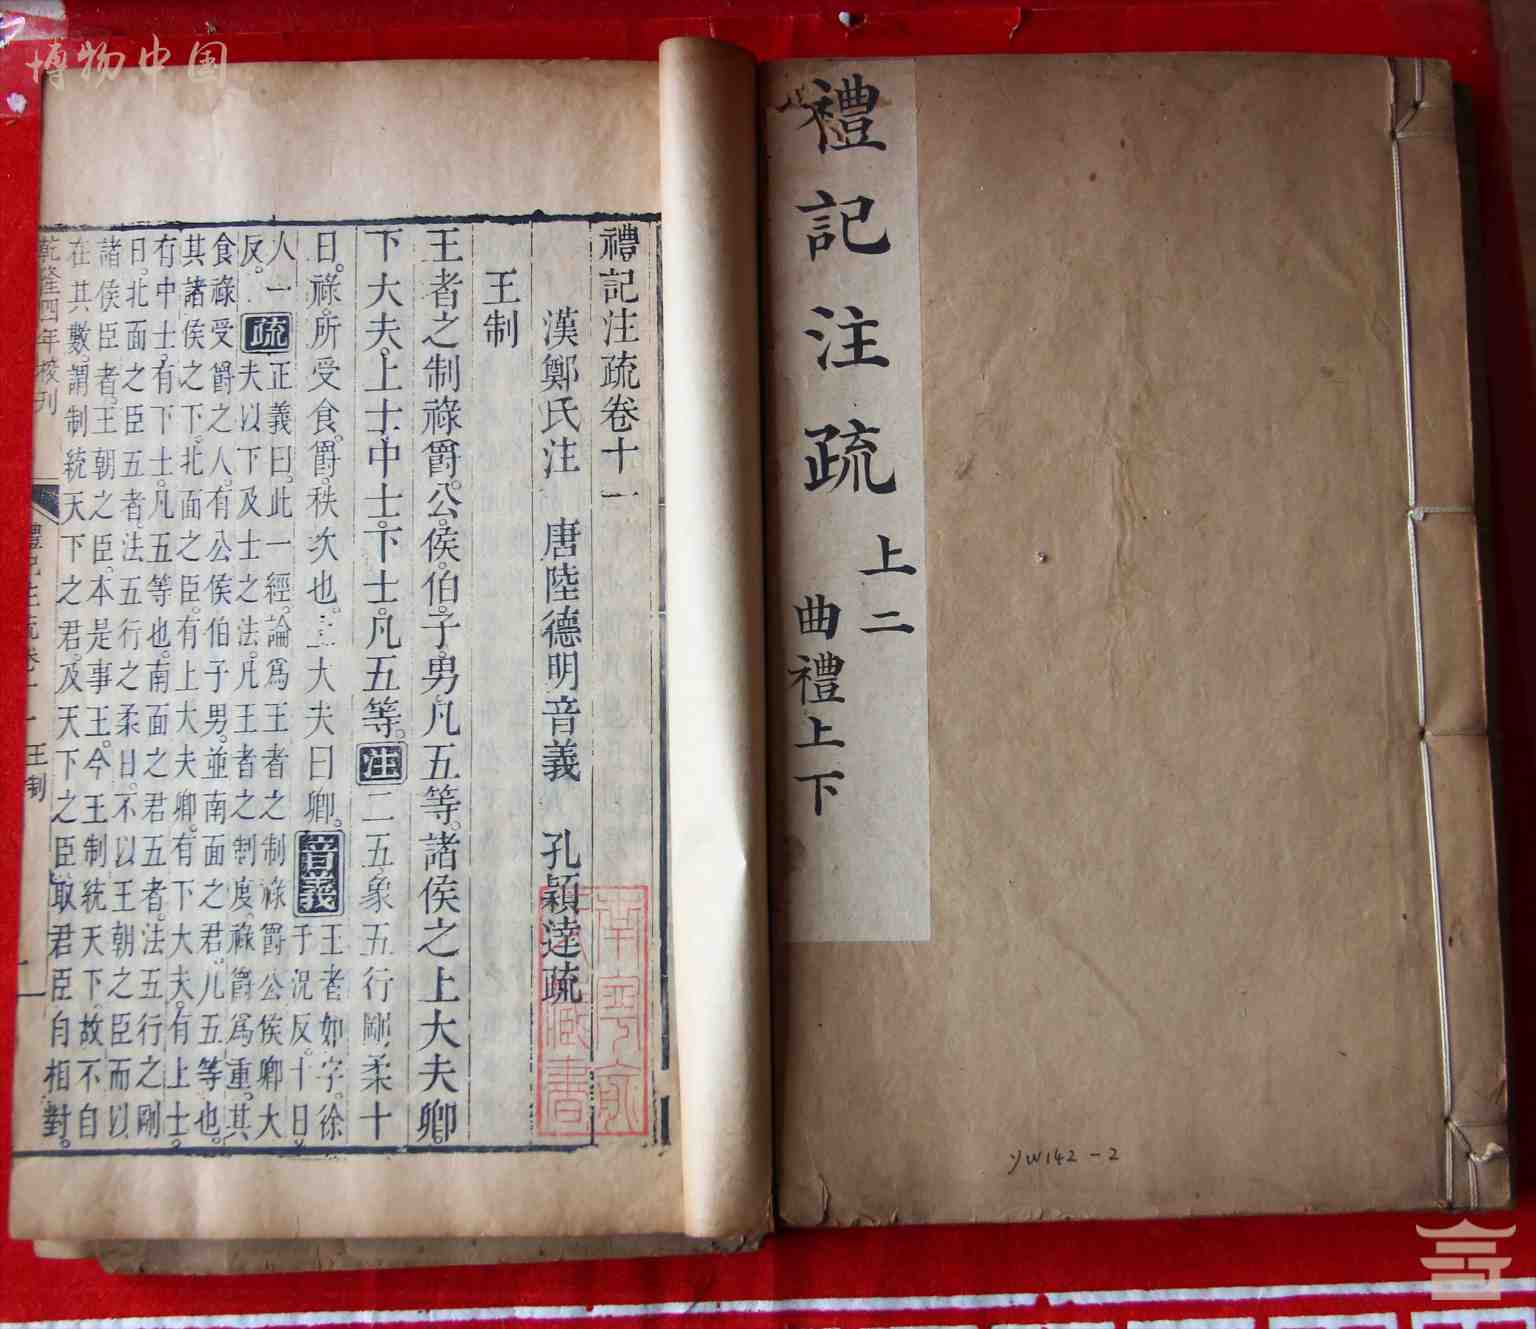 博物中国
禮記注疏
上二
曲禮上下
yw142-2
禮記注疏卷十一
漢鄭氏注 唐陸德明音義 孔穎達疏
王制
王者之制祿爵。公。侯。伯。子。男。凡五等。諸侯之上大夫卿。
下大夫。上士。中士。下士。凡五等。注二五。象五行剛柔十
日。祿。所受食。爵。秩次也。上大夫曰卿。音義王者如字。徐
于況反。十日
人一
反。疏正義曰。此一經。論爲王者之制祿爵公侯卿大
夫以下及士之法。凡王者之制度。祿爵爲重。其
食祿受爵之人。有公侯伯子男。並南面之君。凡五等也。
其諸侯之下。北面之臣。有上大夫卿。有下大夫。有上士。
有中士。有下士。凡五等也。南面之君五者。法五行之剛
日。北面之臣五者。法五行之柔日。不以王朝之臣而以
諸侯臣者。王朝之臣。本是事王。今王制統天下。故不自
在其數。謂制統天下之君。及天下之臣。取君臣自相對。
乾隆四年校刊
禮記注疏卷十一 王制
一
南寧俞
氏藏書